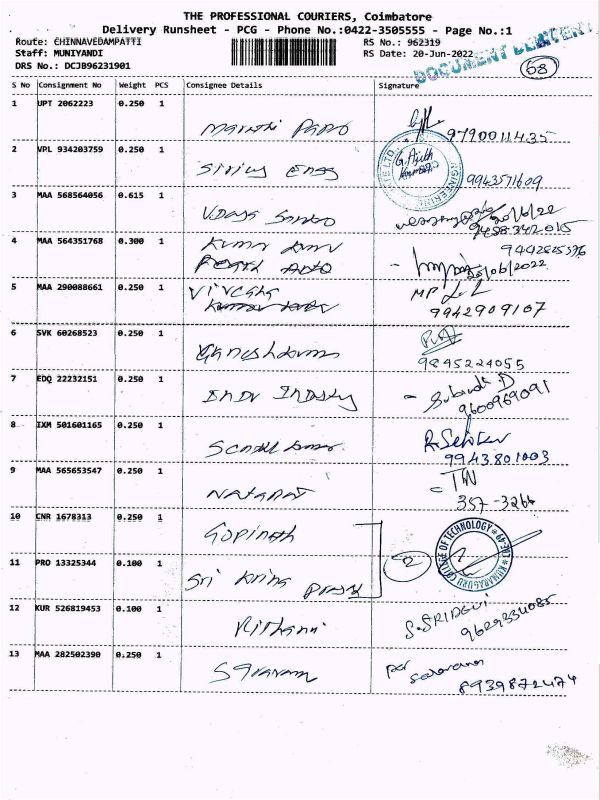 THE PROFESSIONAL COURIERS, Coimbatore
Delivery Runsheet - PCG - Phone No.:0422-3505555 - Page No.:1
Route: CHINNAVEDAMPATTI RS No.: 962319
Staff: MUNIYANDI RS Date: 20-Jun-2022
DRS No.: DCJB96231901
DOCUMENT
68
S No Consignment No Weight PCS Consignee Details Signature
1 UPT 2062223 0.250 1
9790011435
2 VPL 934203759 0.250 1
Sirius Engg
G. Ajith
9943571609
3 MAA 568564056 0.615 1
20/6/22
9488342015
4 MAA 564351768 0.300 1
Auto
20/06/2022
5 MAA 290088661 0.250 1
MP
9942909107
6 SVK 60268523 0.250 1
9845224055
7 EDQ 22232151 0.250 1
Indu Industry
9600969091
8 IXM 501601165 0.250 1
9943801003
9 MAA 565653547 0.250 1
Nataraj
TN
357-3264
10 CNR 1678313 0.250 1
Gopinath
COLLEGE OF TECHNOLOGY
KUMARAGURU
2
11 PRO 13325344 0.100 1
Sri
12 KUR 526819453 0.100 1
S.SRIDEVI
9629334085
13 MAA 282502390 0.250 1
Saravanan
per
Saravanan
8939872474